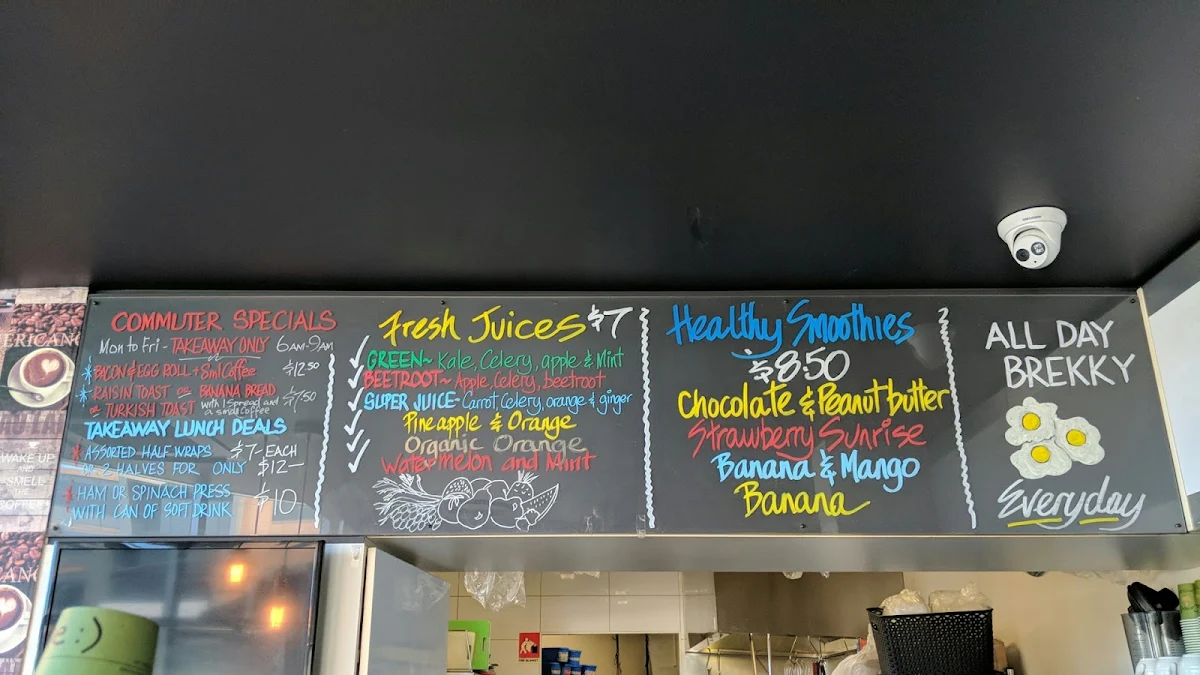 COMMUTER SPECIALS
Mon to Fri - TAKEAWAY ONLY 6AM-9AM
BACON & EGG ROLL + Sml Coffee $12.50
RAISIN TOAST or BANANA BREAD $7.50
or TURKISH TOAST with 1 Spread and
a small coffee
TAKEAWAY LUNCH DEALS
ASSORTED HALF WRAPS $7-EACH
2 HALVES FOR ONLY $12-
HAM OR SPINACH PRESS $10
WITH CAN OF SOFT DRINK
Fresh Juices $7
GREEN~ Kale, Celery, apple & Mint
BEETROOT~ Apple, Celery, beetroot
SUPER JUICE- Carrot Celery, orange & ginger
Pineapple & Orange
Organic Orange
Watermelon and Mint
Healthy Smoothies
$8.50
Chocolate & Peanut butter
Strawberry Sunrise
Banana & Mango
Banana
ALL DAY
BREKKY
Everyday
WAKE UP
AND
SMELL
THE
e:)